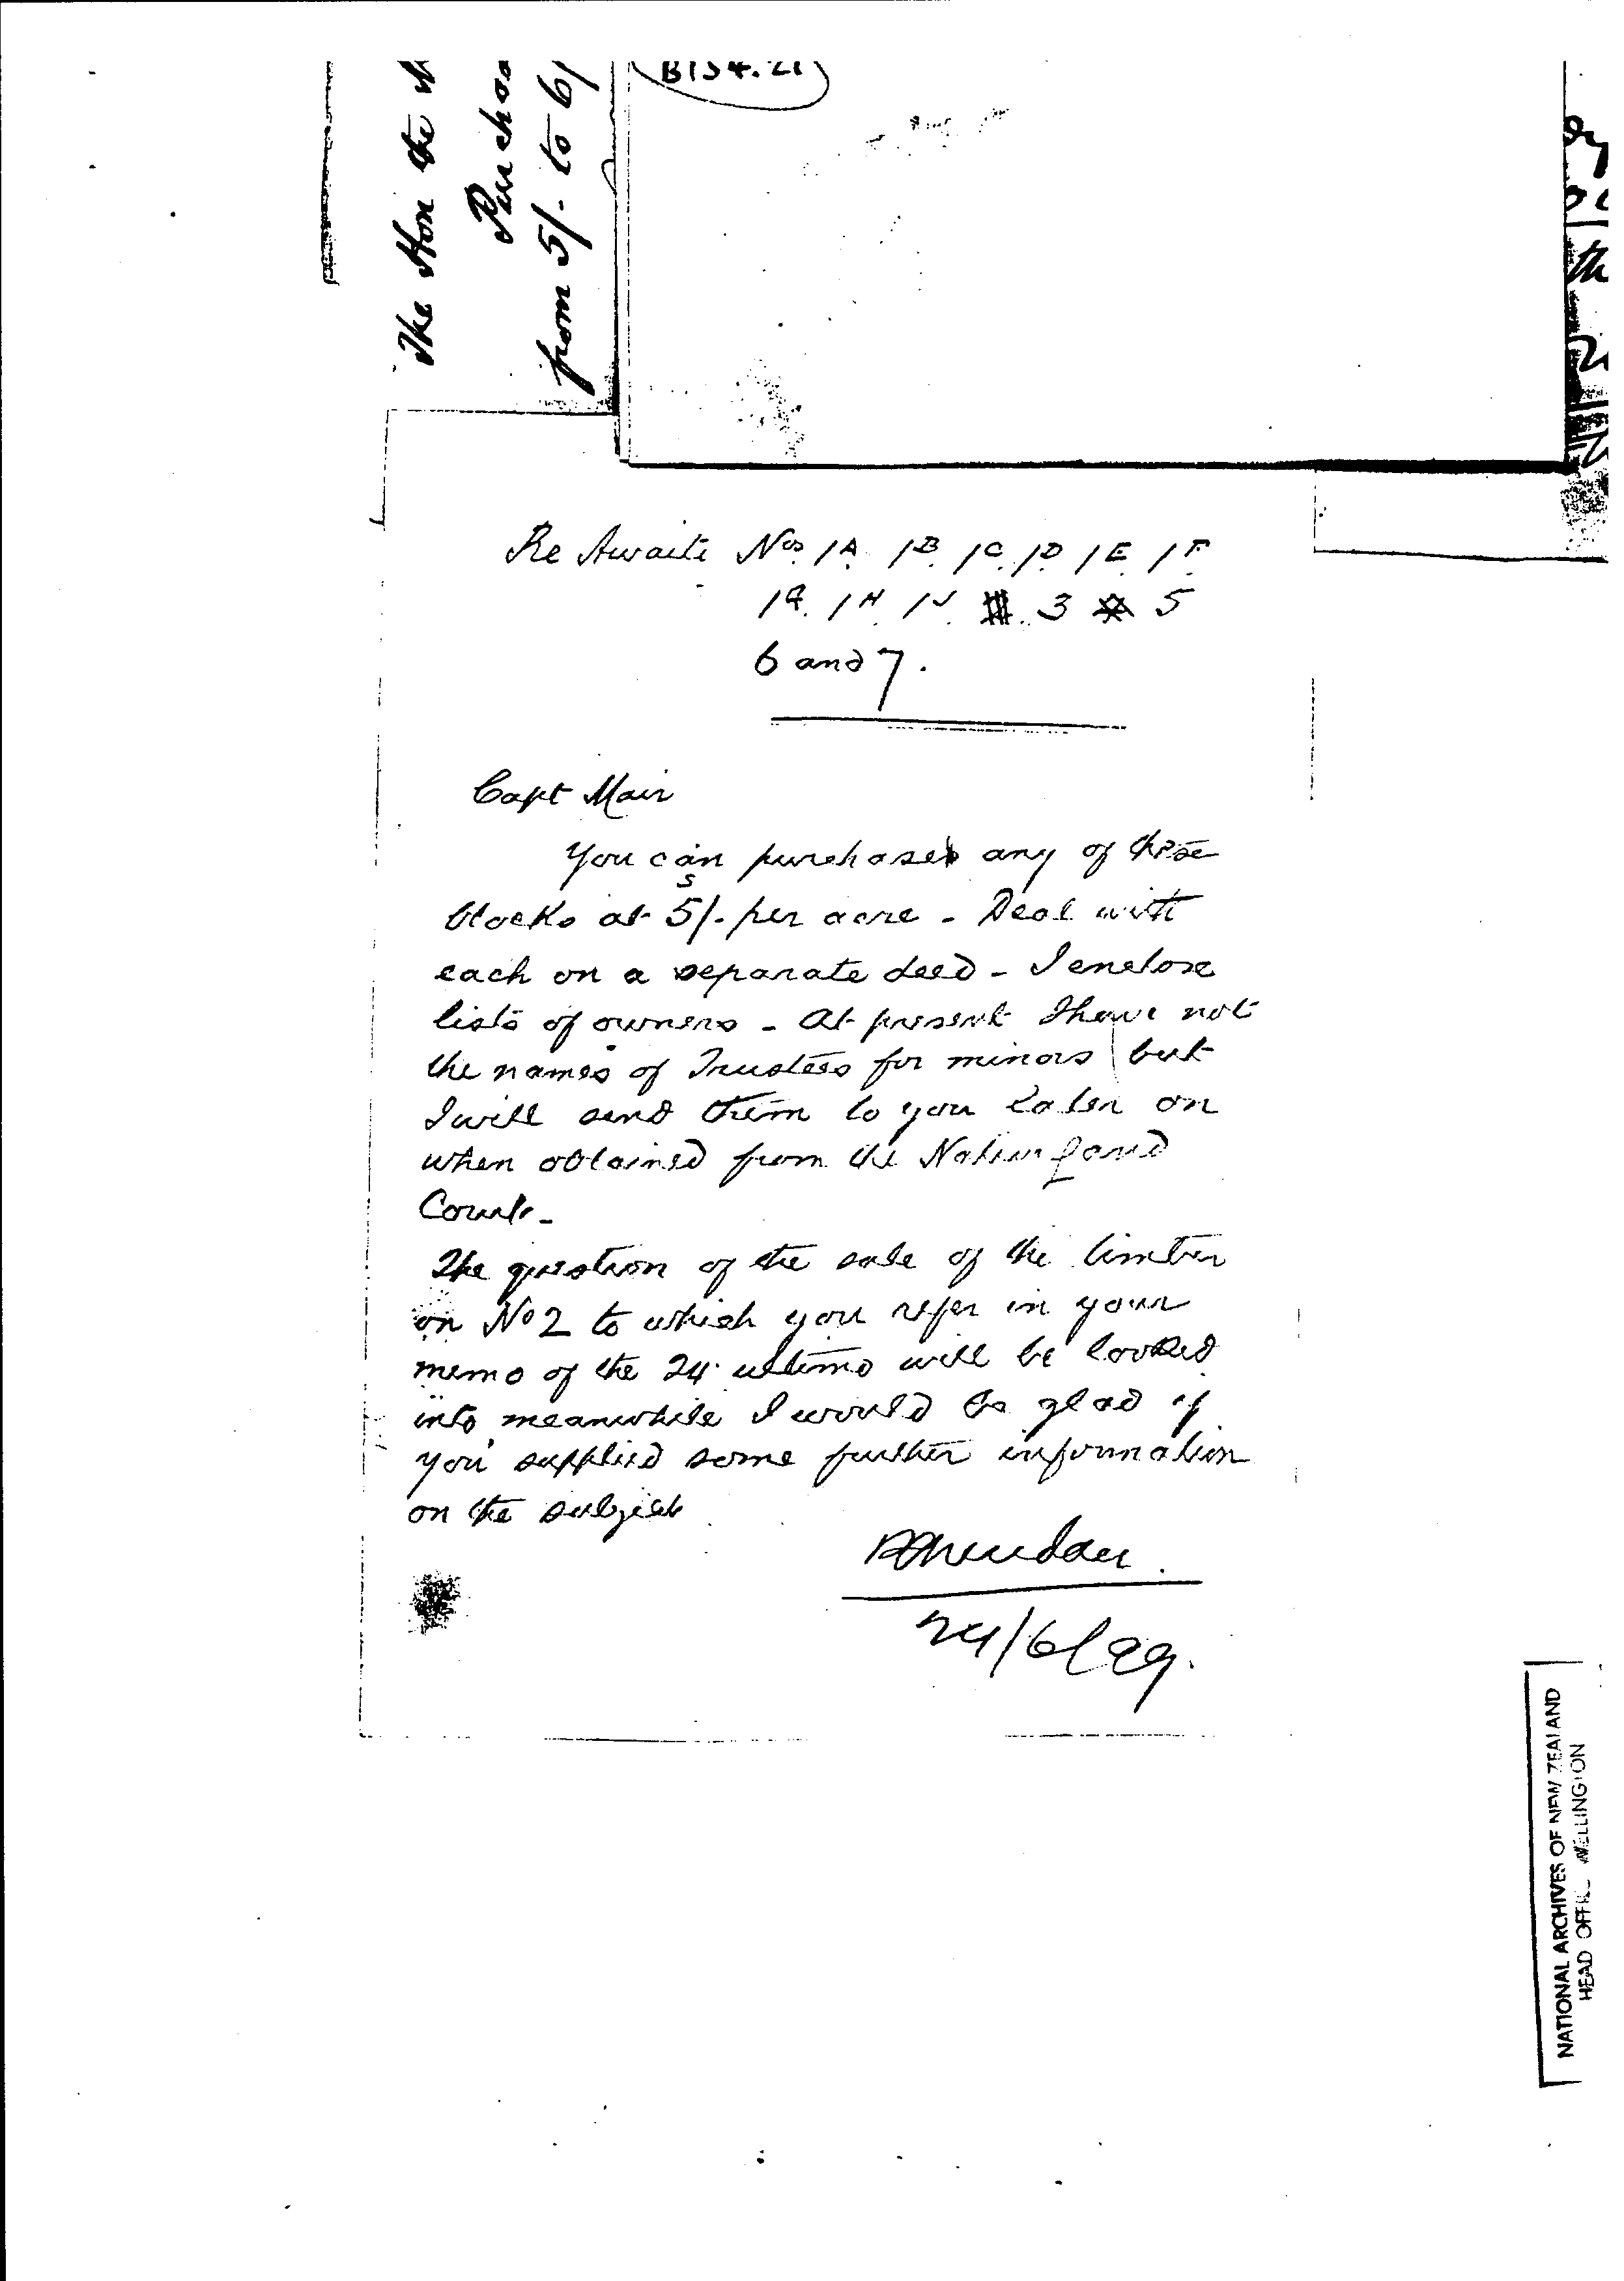 The Hon the
Purchas
from 5/- to 6/
B154.21
Re Awaiti Nos. 1A. 1B. 1C. 1D. 1E. 1F.
1G. 1H. 1J. 3 5
6 and 7.
Capt Mair
You can purchase any of these
blocks at 5/- per acre - Deal with
each on a separate deed - I enclose
lists of owners - At present I have not
the names of Trustees for minors but
I will send them to you later on
when obtained from the Native Land
Court -
The question of the sale of the timber
on No 2 to which you refer in your
memo of the 24 ultimo will be looked
into meanwhile I would be glad if
you supplied some further information
on the subject
24/6/99.
NATIONAL ARCHIVES OF NEW ZEALAND
HEAD OFFICE WELLINGTON